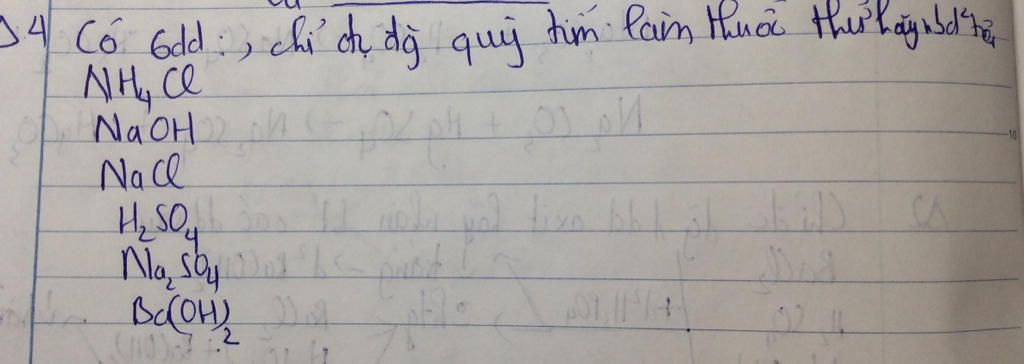 4 Có 6dd:, chỉ đc dg quỳ tím làm thuốc thử hãy nb d²
NH₄Cl
NaOH
NaCl
H₂SO₄
Na₂SO₄
Ba(OH)₂